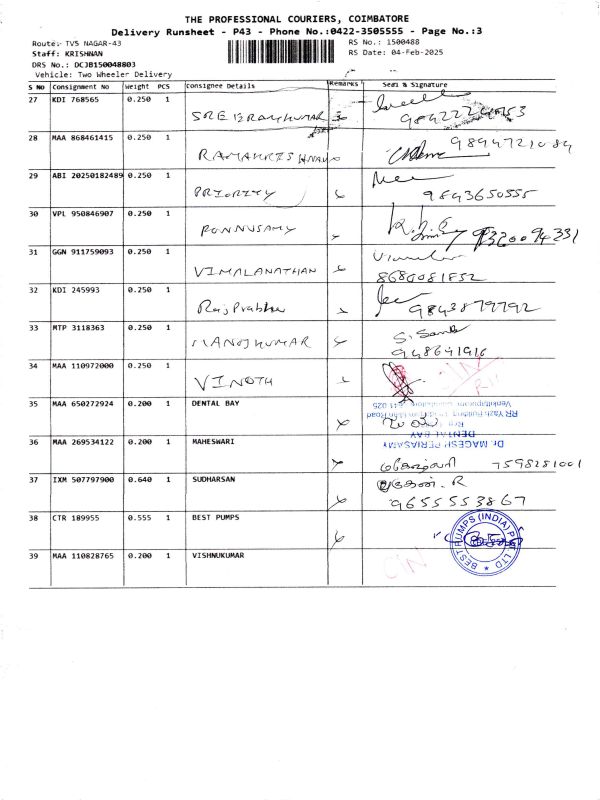 THE PROFESSIONAL COURIERS, COIMBATORE
Delivery Runsheet - P43 - Phone No.:0422-3505555 - Page No.:3
Route:- TVS NAGAR-43 RS No.: 1500488
Staff: KRISHNAN RS Date: 04-Feb-2025
DRS No.: DCJB150048803
Vehicle: Two Wheeler Delivery
S No Consignment No Weight PCS Consignee Details Remarks Seal & Signature
27 KDI 768565 0.250 1
28 MAA 868461415 0.250 1
RAMAKRISHNAN 9894721084
29 ABI 20250182489 0.250 1
PRIORITY 9843650555
30 VPL 950846907 0.250 1
PONNUSAMY
31 GGN 911759093 0.250 1
VIMALANATHAN 8680081852
32 KDI 245993 0.250 1
Raj Prabhu 9843879792
33 MTP 3118363 0.250 1
MANOJKUMAR
34 MAA 110972000 0.250 1
VINOTH
35 MAA 650272924 0.200 1 DENTAL BAY
DENTAL BAY
Dr. MAGESH PERIASAMY
36 MAA 269534122 0.200 1 MAHESWARI
மகேஸ்வரி 7598281001
37 IXM 507797900 0.640 1 SUDHARSAN
9655553867
38 CTR 189955 0.555 1 BEST PUMPS
BEST PUMPS (INDIA) PVT. LTD
39 MAA 110828765 0.200 1 VISHNUKUMAR